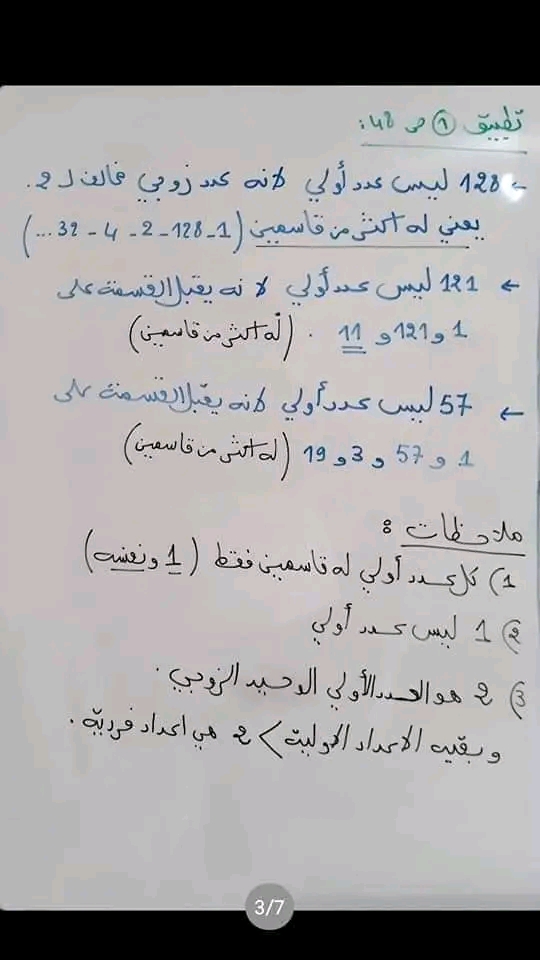 تطبيق ① ص 48:
← 128 ليس عدد أولي لانه عدد زوجي مخالف لـ 2.
يعني له اكثر من قاسمين (1 - 128 - 2 - 4 - 32 ...)
← 121 ليس عدد أولي لا نه يقبل القسمة على
1 و 121 و 11 . (له اكثر من قاسمين)
← 57 ليس عدد أولي لانه يقبل القسمة على
1 و 57 و 3 و 19 (له اكثر من قاسمين)
ملاحظات :
1) كل عدد أولي له قاسمين فقط (1 ونفسه)
2) 1 ليس عدد أولي
3) 2 هو العدد الأولي الوحيد الزوجي .
و بقيه الاعداد الاولية > 2 هي اعداد فرديّة .
3/7